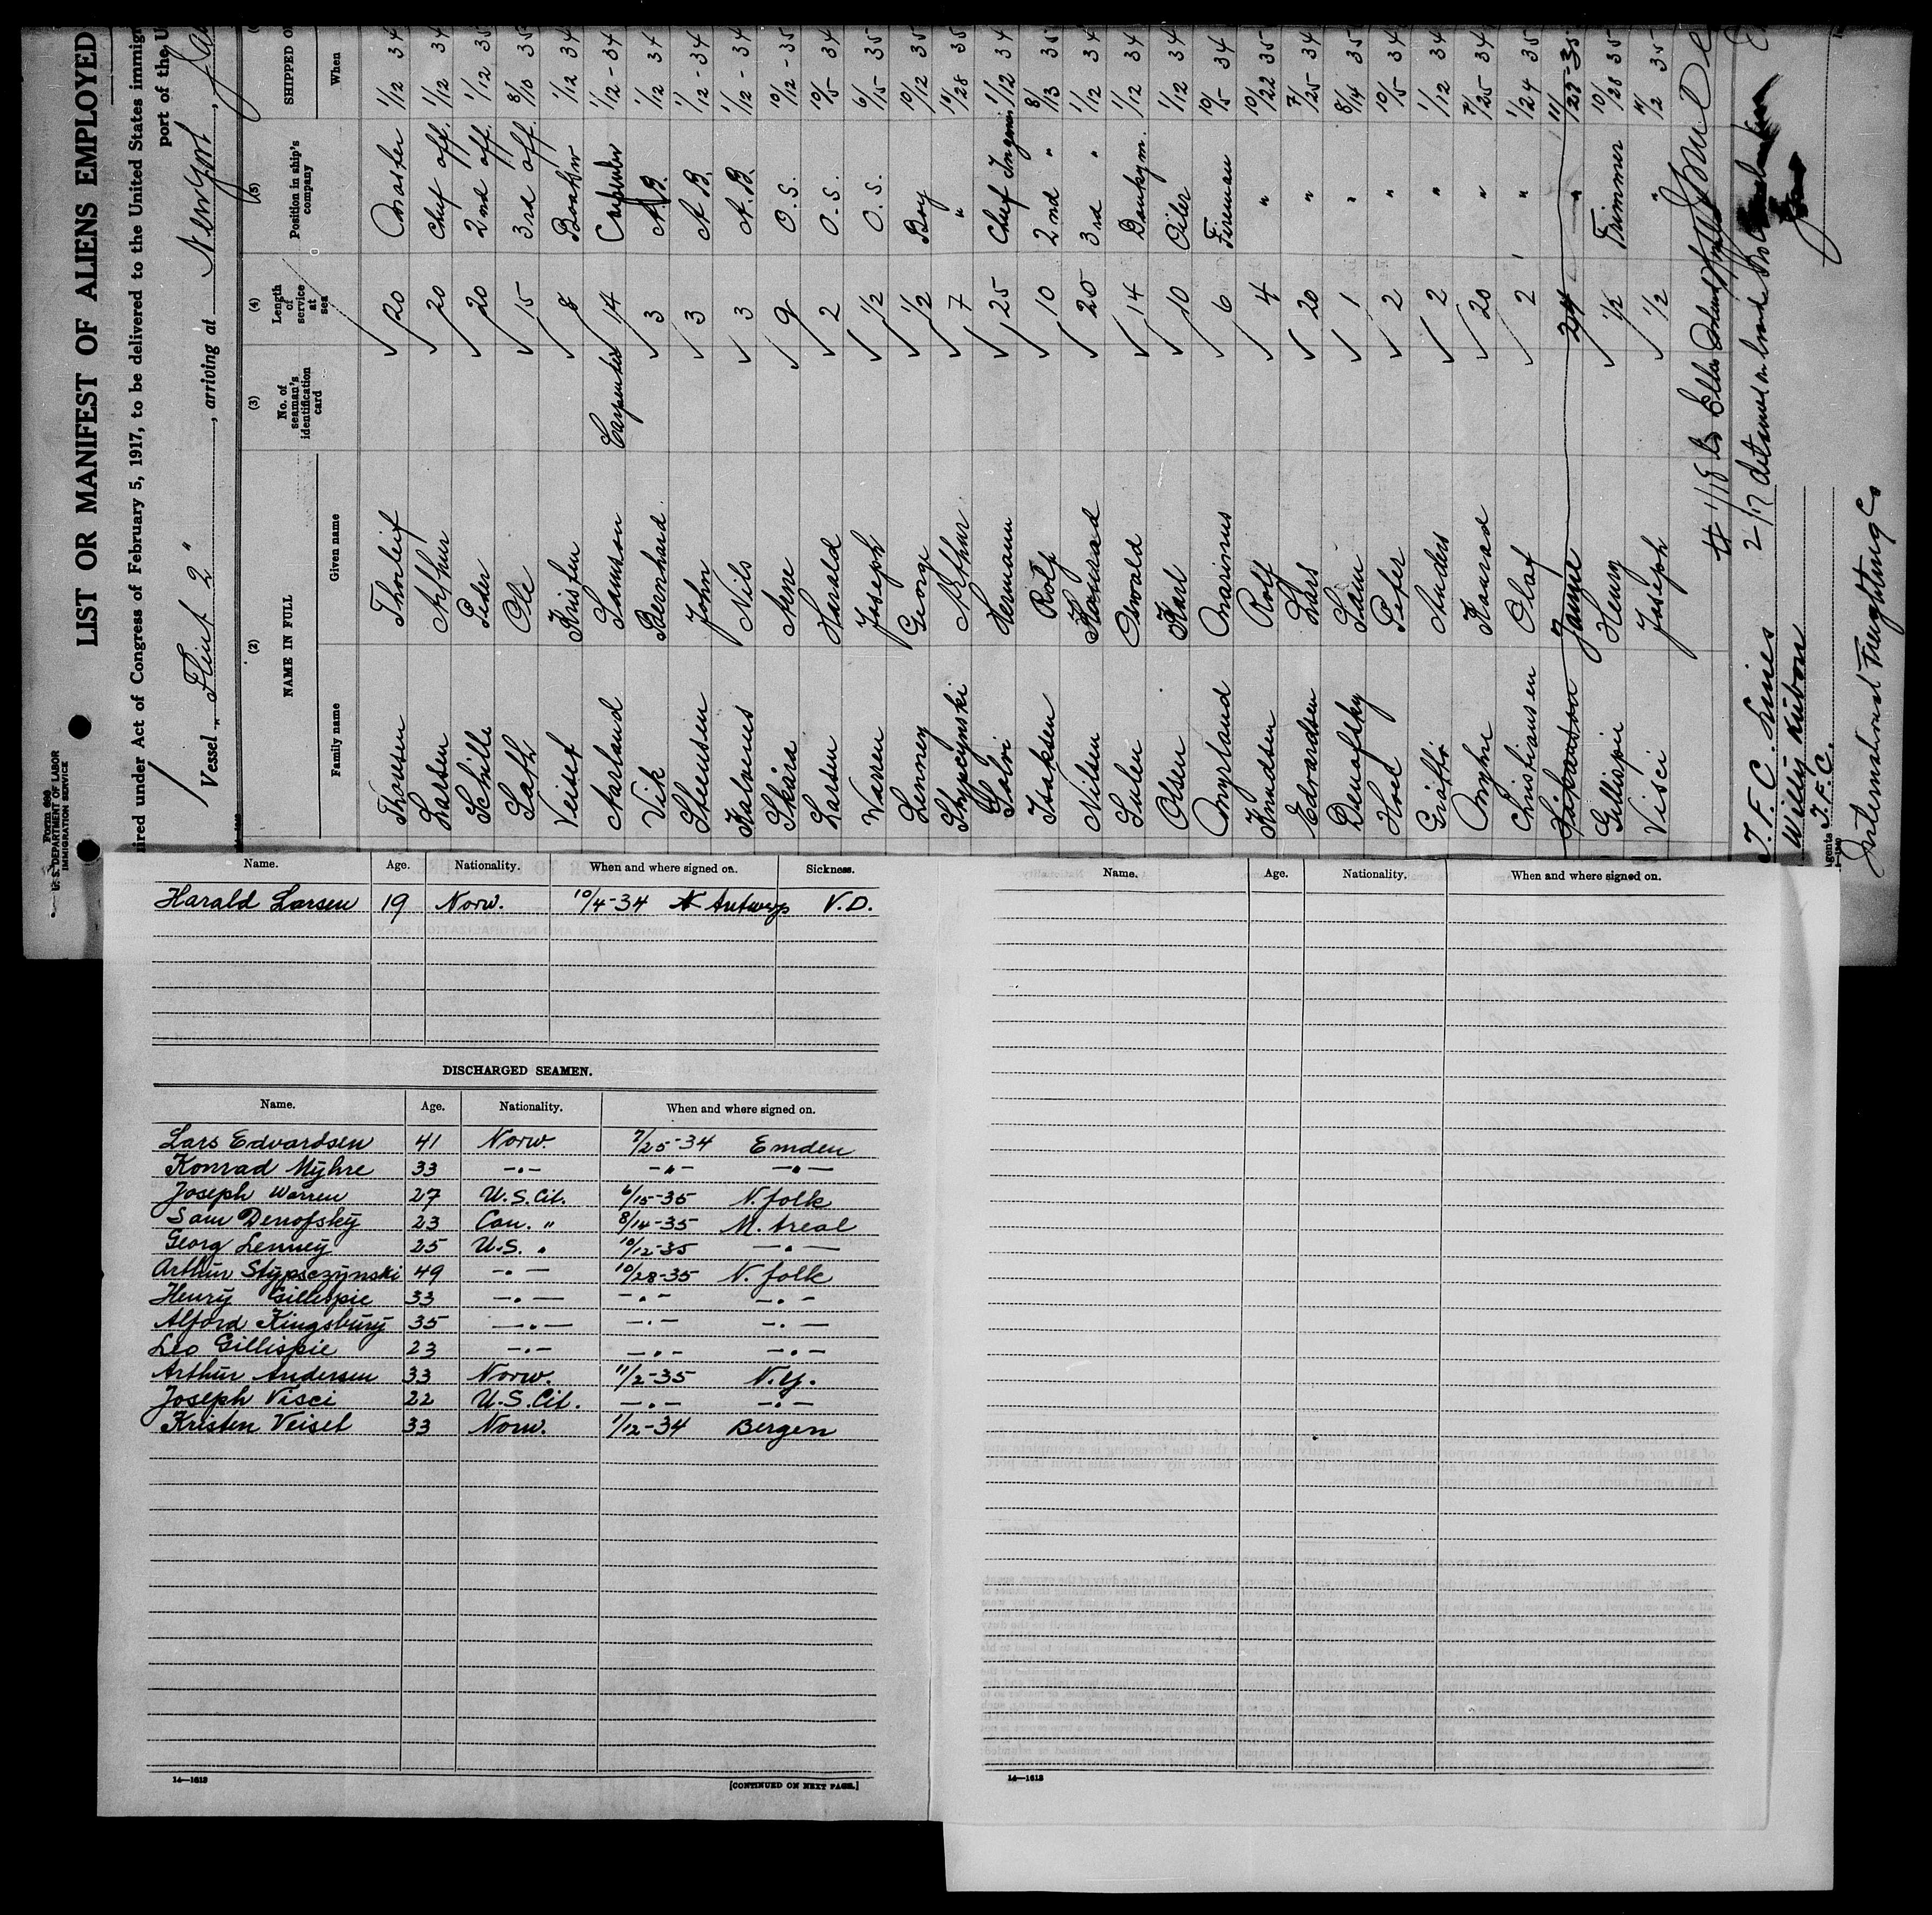 Form 680
U. S. DEPARTMENT OF LABOR
IMMIGRATION SERVICE
LIST OR MANIFEST OF ALIENS EMPLOYED
uired under Act of Congress of February 5, 1917, to be delivered to the United States immigr
port of the U
Vessel "Flint 2", arriving at New York,
(2) (3) (4) (5)
NAME IN FULL No. of seaman's identification card Length of service at sea Position in ship's company SHIPPED O
Family name Given name When
Thorsen Thorleif 20 Master 1/12 34
Larsen Arthur 20 Chief off. 1/12 34
Schille Peder 20 2nd off. 1/12 35
Sath Ole 15 3rd off. 8/10 35
Veisel Kristen 8 1/12 34
Aarland Samson Carpenter 14 1/12-34
Vik Bernhard 3 A.B. 1/12 34
Steensen John 3 A.B. 1/12-34
Kalvenes Nils 3 A.B. 1/12-34
Skåra Arne 9 O.S. 10/12-35
Larsen Harald 2 O.S. 10/5 34
Warren Joseph 1/2 O.S. 6/15 35
Lenney Georg 1/2 Boy 10/12 35
Stypczynski Arthur 7 " 10/28 35
Hermann 25 Chief 1/12 34
Isaksen Rolf 10 2nd " 8/13 35
Nilsen Konrad 20 3rd " 1/12 34
Sulen Oswald 14 Donkeym. 1/12 34
Olsen Karl 10 Oiler 1/12 34
Myrland Marinus 6 Fireman 10/15 34
Knudsen Rolf 4 " 10/22 35
Edvardsen Lars 20 " 7/25 34
Denofsky Sam 1 " 8/14 35
Hoel Peter 2 " 10/5 34
Anders 2 " 1/12 34
Myhre Konrad 20 " 7/25 34
Christiansen Olaf 2 " 1/24 35
24 " 11/28-35
Gillispie Henry 1/2 Trimmer 10/28 35
Visci Joseph 1/2 " 11/2 35
I. F. C. Lines
Agents I.F.C.
International Freighting Co
Name. Age. Nationality. When and where signed on. Sickness.
Harald Larsen 19 Norw. 10/4-34 Antwerp V.D.
DISCHARGED SEAMEN.
Name. Age. Nationality. When and where signed on.
Lars Edvardsen 41 Norw. 7/25-34 Emden
Konrad Myhre 33 -"- -"- -"-
Joseph Warren 27 U.S. Cit. 6/15-35 N. folk
Sam Denofsky 23 Can. " 8/14-35 M. treal
Georg Lenney 25 U.S. " 10/12-35 -"-
Arthur Stypsczynski 49 -"- 10/28-35 N. folk
Henry Gillespie 33 -"- -"- -"-
Alford Kingsbury 35 -"- -"- -"-
Leo Gillispie 23 -"- -"- -"-
Arthur Andersen 33 Norw. 11/2-35 N.Y.
Joseph Visci 22 U.S. Cit. -"- -"-
Kristen Veisel 33 Norw. 1/12-34 Bergen
14—1613 [CONTINUED ON NEXT PAGE.]
Name. Age. Nationality. When and where signed on.
14—1613